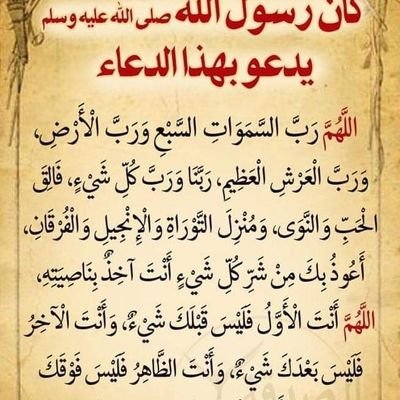 كان رسول الله صلى الله عليه وسلم
يدعو بهذا الدعاء
اللَّهُمَّ رَبَّ السَّمَوَاتِ السَّبْعِ وَرَبَّ الْأَرْضِ،
وَرَبَّ الْعَرْشِ الْعَظِيمِ، رَبَّنَا وَرَبَّ كُلِّ شَيْءٍ، فَالِقَ
الْحَبِّ وَالنَّوَى، وَمُنْزِلَ التَّوْرَاةِ وَالْإِنْجِيلِ وَالْفُرْقَانِ،
أَعُوذُ بِكَ مِنْ شَرِّ كُلِّ شَيْءٍ أَنْتَ آخِذٌ بِنَاصِيَتِهِ،
اللَّهُمَّ أَنْتَ الْأَوَّلُ فَلَيْسَ قَبْلَكَ شَيْءٌ، وَأَنْتَ الْآخِرُ
فَلَيْسَ بَعْدَكَ شَيْءٌ، وَأَنْتَ الظَّاهِرُ فَلَيْسَ فَوْقَكَ